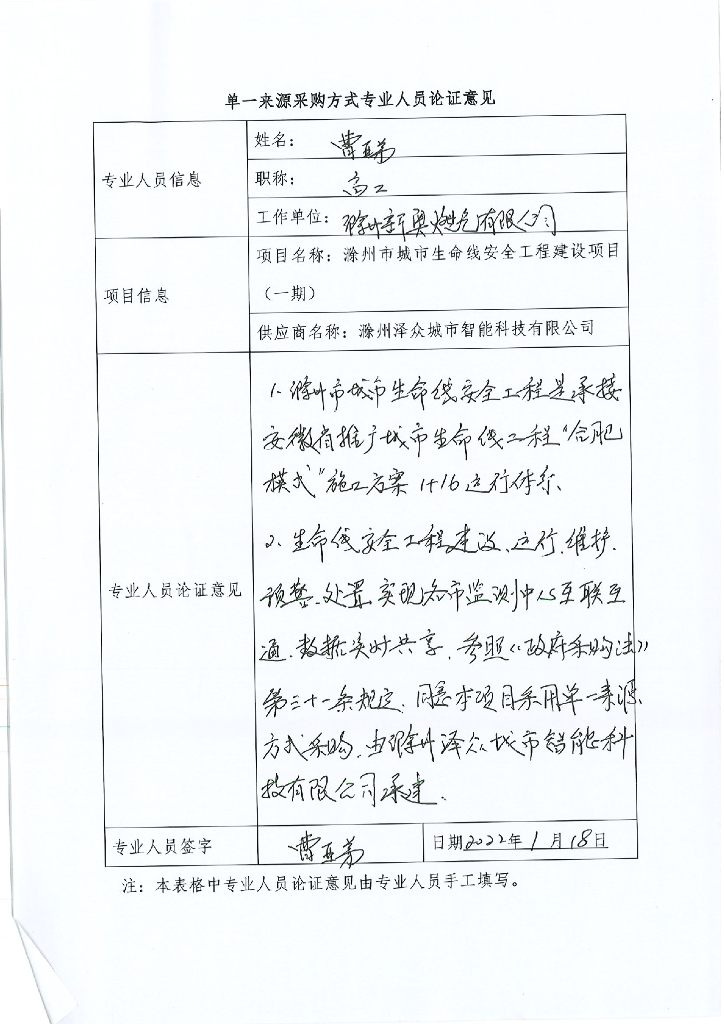 单一来源采购方式专业人员论证意见
专业人员信息
姓名：曹亚弟
职称：高工
工作单位：滁州新奥燃气有限公司
项目信息
项目名称：滁州市城市生命线安全工程建设项目
（一期）
供应商名称：滁州泽众城市智能科技有限公司
专业人员论证意见
1、滁州市城市生命线安全工程是承接
安徽省推广城市生命线工程“合肥
模式”施工方案 1+16运行体系、
2、生命线安全工程建设、运行、维护、
预警、处置、实现各市监测中心互联互
通、数据实时共享，参照《政府采购法》
第三十一条规定，同意本项目采用单一来源
方式采购，由滁州泽众城市智能科
技有限公司承建。
专业人员签字
曹亚弟
日期2022年1月18日
注：本表格中专业人员论证意见由专业人员手工填写。